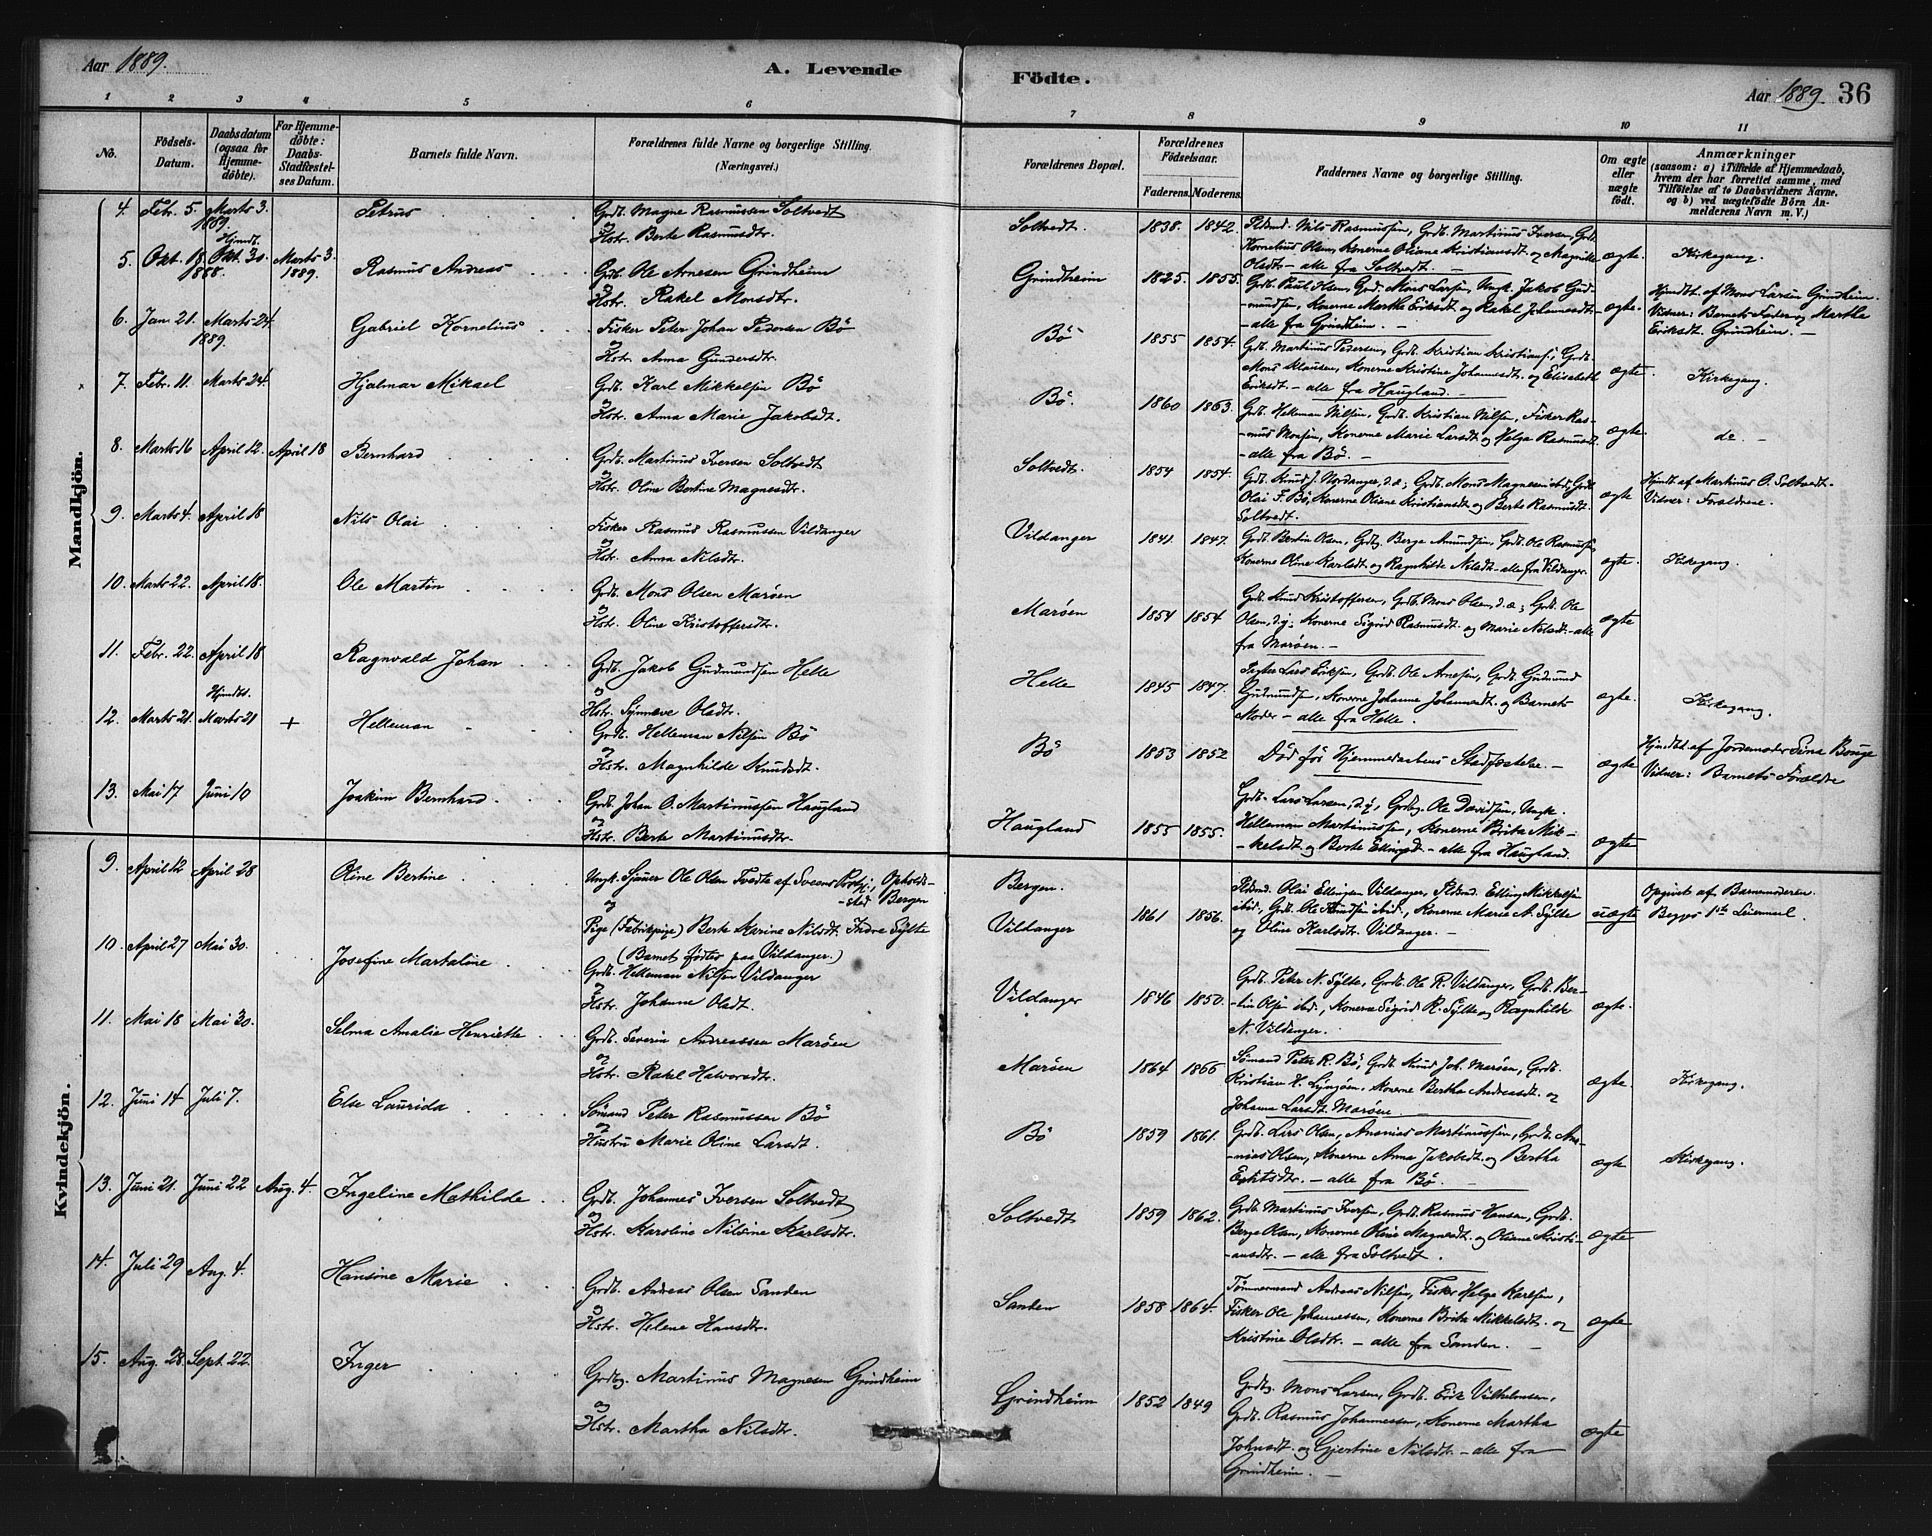 Aar 1889.
A. Levende Födte.
Aar 1889 36
1 2 3 4 5 6 7 8 9 10 11
No.
Födsels-Datum.
Daabsdatum (ogsaa for Hjemmedöbte).
For Hjemmedöbte: Daabs-Stadfæstelses Datum.
Barnets fulde Navn.
Forældrenes fulde Navne og borgerlige Stilling. (Næringsvei.)
Forældrenes Bopæl.
Forældrenes Födselsaar.
Faderens. Moderens.
Faddernes Navne og borgerlige Stilling.
Om ægte eller uægte födt.
Anmærkninger
(saasom: a) i Tilfælde af Hjemmedaab, hvem der har forrettet samme, med Tilföielse af to Daabsvidners Navne, og b) ved uægtefödte Börn Anmelderens Navn m. V.)
Mandkjön.
4. Febr. 5. 1889. Marts 3. Petrus
Grdb. Magne Rasmussen Soltvedt
og
Hstr. Berte Rasmusdtr.
Soltvedt. 1838. 1842.
Pldsmd. Nils Rasmussen, Grdb. Martinus Iversen, Grdb.
Kornelius Olsen, Konerne Oliane Kristiansdt. og Magnilde
Olsdtr. – alle fra Soltvedt. –
ægte. Kirkegang.
5. Okt. 18. 1888. Hjmdt. Okt. 30. Marts 3. 1889. Rasmus Andreas
Grdb. Ole Arnesen Grindheim
og
Hstr. Rakel Monsdtr.
Grindheim 1825. 1855.
Grdb. Paul Olsen, Grdb. Mons Larsen, Ungk. Jakob Gudmundsen, Konerne Martha Eriksdt. og Rakel Johannesdt.
– alle fra Grindheim. –
ægte. Hjmdbt. af Mons Larsen Grindheim.
Vidner: Barnets Fader og Martha
Eriksdt. Grindheim. –
6. Jan. 21. 1889. Marts 24. Gabriel Kornelius
Fisker Peter Johan Pedersen Bö
og
Hstr. Anna Gundersdtr.
Bö 1855 1854.
Grdb. Martinus Pedersen, Grdb. Kristian Kristians., Grdb.
Mons Klausen, Konerne Kristine Johannesdt. og Elisabeth
Eriksdt. – alle fra Haugland. –
ægte. Kirkegang.
7. Febr. 11. Marts 24. Hjalmar Mikael
Grdb. Karl Mikkelsen Bö
og
Hstr. Anna Marie Jakobsdt.
Bö. 1860 1863.
Grdb. Helleman Nilsen, Grdb. Kristian Nilsen, Fisker Rasmus Monsen, Konerne Marie Larsdt. og Helga Rasmusdt.
– alle fra Bö. –
ægte. do. –
8. Marts 16 April 12. April 18 Bernhard
Grdb. Martinus Iversen Soltvedt
og
Hstr. Oline Bertine Magnesdtr.
Soltvedt. 1854 1854.
Grdb. Knud J. Nordanger, d.æ; Grdb. Mons Magnesen ibid; Grdb.
Olai F. Bö, Konerne Oliane Kristiansdt. og Berte Rasmusdt.
Soltvedt.
ægte Hjmdt. af Martinus O. Soltvedt.
Vidner: Forældrene.
9. Marts 4. April 18 Nils Olai
Fisker Rasmus Rasmussen Vildanger
og
Hstr. Anna Nilsdtr.
Vildanger 1841. 1847.
Grdb. Bertin Olsen, Grdbg. Berge Amundsen, Grdb. Ole Rasmussen,
Konerne Oline Karlsdt. og Ragnhilde Nilsdt. – alle fra Vildanger.
ægte. Kirkegang.
10. Marts 22. April 18. Ole Martin
Grdb. Mons Olsen Maröen
og
Hstr. Oline Kristoffersdt.
Maröen 1854 1854
Grdb. Knud Kristoffersen, Grdb. Mons Olsen, d.æ; Grdb. Ole
Olsen, d.y; Konerne Sigrid Rasmusdt. og Marie Nilsdt. – alle
fra Maröen. –
ægte
11. Febr. 22. April 18 Ragnvald Johan
Grdb. Jakob Gudmundsen Helle
og
Hstr. Synneve Olsdtr.
Helle 1845 1847.
Lars Eriksen, Grdb. Ole Arnesen, Grdb. Gudmund
Gudmunds., Konerne Johanne Johannesdt. og Barnets
Moder – alle fra Helle.
ægte. Kirkegang.
12. Marts 21. Hjmdbt. Marts 21 + Helleman
Grdb. Helleman Nilsen Bö
og
Hstr. Magnhilde Knudsdt.
Bö 1853 1852
Död för Hjemmedaabens Stadfæstelse. –
ægte Hjmdbt. af Jordemoder Sina Bouge
Vidner: Barnets Forældre
13. Mai 17 Juni 10 Joakim Bernhard
Grdb. Johan O. Martinussen Haugland
og
Hstr. Berte Martinusdtr.
Haugland 1855 1855.
Grdb. Lars Larsen, d.y., Grdbg. Ole Davidsen, Ungk.
Helleman Martinussen, Konerne Brita Mikkelsdt. og Berte Ellingsdt. – alle fra Haugland.
ægte
Kvindekjön.
9. April 12 April 28 Oline Bertine
Ungk. Sjauer Ole Olsen Tvedte af Sveens Prstgj., Opholdssted Bergen
og
Pige (Fabrikpige) Berte Karine Nilsdt. Indre Sylte
(Barnet födtes paa Vildanger.)
Bergen.
Vildanger 1861 1856.
Pldsmd. Olai Ellingsen Vildanger, Pldsmd. Elling Mikkelsen
ibid., Grdb. Ole Knudsen ibid., Konerne Marie A. Sylte
og Oline Karlsdt. Vildanger. –
uægte Opgivet af Barnemoderen.
Begges 1ste Leiermaal.
10. April 27 Mai 30. Josefine Martaline
Grdb. Helleman Nilsen Vildanger
og
Hstr. Johanne Olsdt.
Vildanger 1846 1850.
Grdb. Peter N. Sylte, Grdb. Ole R. Vildanger, Grdb. Bertin Olsen ibid., Konerne Sigrid R. Sylte og Ragnhilde
N. Vildanger.
ægte.
11. Mai 18 Mai 30. Selma Amalie Henriette
Grdb. Severin Andreassen Maröen
og
Hstr. Rakel Halvorsdtr.
Maröen 1864 1866
Sömand Peter R. Bö, Grdb. Knud Joh. Maröen, Grdb.
Kristian H. Lyngöen, Konerne Bertha Andreasdt. og
Johanna Larsdt. Maröen.
ægte Kirkegang.
12. Juni 14 Juli 7. Else Laurida
Sömand Peter Rasmussen Bö
og
Hustru Marie Oline Larsdt.
Bö 1859 1861.
Grdb. Lars Olsen, Ananias Martinussen, Grdb. Ananias Olsen, Konerne Anna Jakobsdt. og Bertha
– alle fra Bö. –
ægte Kirkegang.
13. Juni 21. Juni 22 Aug. 4. Ingeline Mathilde
Grdb. Johannes Iversen Soltvedt
og
Hstr. Karoline Nilsine Karlsdtr.
Soltvedt 1859 1862.
Grdb. Martinus Iversen, Grdb. Rasmus Hansen, Grdb.
Berge Olsen, Konerne Oline Magnesdt. og Oliane Kristiansdtr. – alle fra Soltvedt.
ægte
14. Juli 29 Aug. 4. Hansine Marie
Grdb. Andreas Olsen Sanden
og
Hstr. Helene Hansdtr.
Sanden 1858 1864.
Tömmermand Andreas Nilsen, Fisker Helge Karlsen,
Fisker Ole Johannessen, Konerne Brita Mikkelsdt. og
Kristine Olsdtr. – alle fra Sanden. –
ægte
15. Aug. 28. Sept. 22. Inger
Grdbg. Martinus Magnesen Grindheim
og
Hstr. Martha Nilsdtr.
Grindheim 1852 1849
Grdbg. Mons Larsen, Grdb. Erik Vilhelmsen,
Grdb. Rasmus Johannessen, Konerne Martha
Johnsdt. og Gjertine Nilsdt. – alle fra
Grindheim. –
ægte